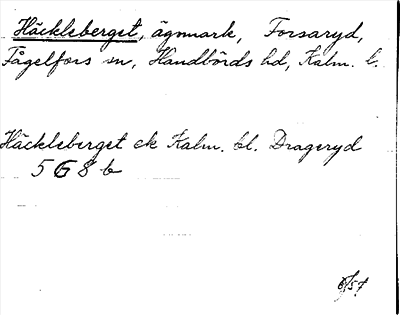 Häckleberget, ägomark, Forsaryd,
Fågelfors sn, Handbörds hd, Kalm. l.
Häckleberget ek Kalm. bl. Drageryd
5 G 8 b